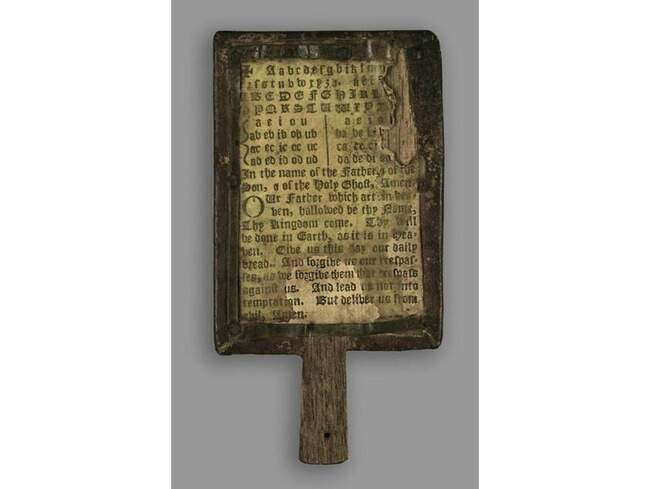 ✠ Aabcdefghiklmn
rſstuvwxyz
ABCDEFGHIKL
PQRSTUWXYZ
a e i o u a e i o
ab eb ib ob ub ba be bi
ac ec ic oc uc ca ce ci
ad ed id od ud da de di do
In the name of the Father, & of the
Son, & of the Holy Ghoſt, Amen.
OUr Father which art in Hea-
ven, hallowed be thy Name,
Thy Kingdom come. Thy Will
be done in Earth, as it is in Hea-
ven. Give us this day our daily
bread. And forgive us our treſpaſ-
ſes, as we forgive them that treſpaſs
againſt us. And lead us not into
temptation. But deliver us from
evil, Amen.